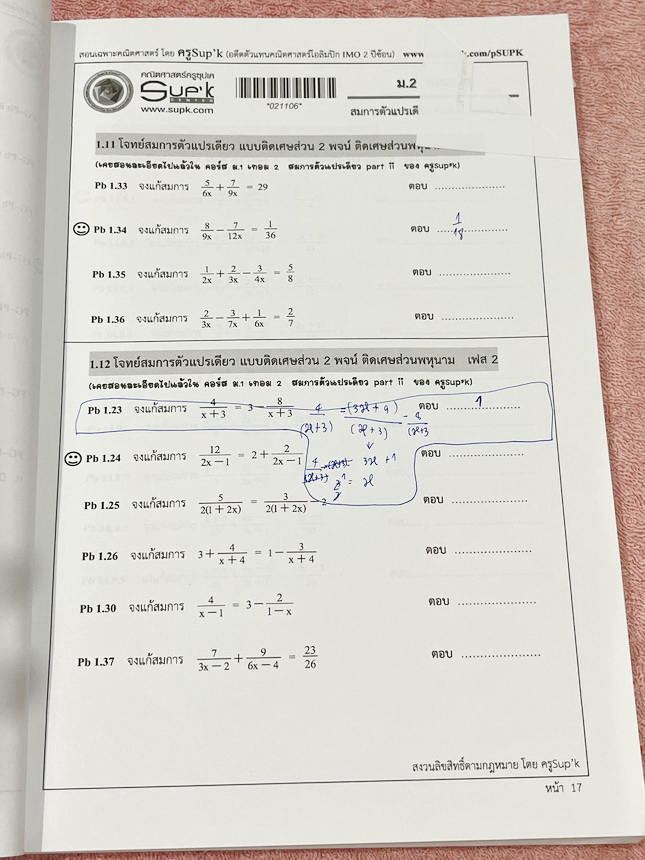 สอนเฉพาะคณิตศาสตร์ โดย ครูSup'k (อดีตตัวแทนคณิตศาสตร์โอลิมปิก IMO 2 ปีซ้อน) www. k.com/pSUPK
คณิตศาสตร์ครูซุปเค
SUP'K
CENTER
www.supk.com
*021106*
ม.2
สมการตัวแปรเดี
1.11 โจทย์สมการตัวแปรเดียว แบบติดเศษส่วน 2 พจน์ ติดเศษส่วนพหุนาม
(เคยสอนละเอียดไปแล้วใน คอร์ส ม.1 เทอม 2 สมการตัวแปรเดียว part ii ของ ครูSup'k)
Pb 1.33 จงแก้สมการ 5/6x + 7/9x = 29 ตอบ ....................
Pb 1.34 จงแก้สมการ 8/9x − 7/12x = 1/36 ตอบ 1/18
Pb 1.35 จงแก้สมการ 1/2x + 2/3x − 3/4x = 5/8 ตอบ ....................
Pb 1.36 จงแก้สมการ 2/3x − 3/7x + 1/6x = 2/7 ตอบ ....................
1.12 โจทย์สมการตัวแปรเดียว แบบติดเศษส่วน 2 พจน์ ติดเศษส่วนพหุนาม เฟส 2
(เคยสอนละเอียดไปแล้วใน คอร์ส ม.1 เทอม 2 สมการตัวแปรเดียว part ii ของ ครูSup'k)
Pb 1.23 จงแก้สมการ 4/(x+3) = 3 − 8/(x+3) 4/(x+3) = (3x+9)/(x+3) − 8/(x+3 ตอบ 1
Pb 1.24 จงแก้สมการ 12/(2x−1) = 2 + 2/(2x−1) ตอบ ....................
3x + 1
= x
Pb 1.25 จงแก้สมการ 5/2(1+2x) = 3/2(1+2x) − 2 ตอบ ....................
Pb 1.26 จงแก้สมการ 3 + 4/(x+4) = 1 − 3/(x+4) ตอบ ....................
Pb 1.30 จงแก้สมการ 4/(x−1) = 3 − 2/(1−x) ตอบ ....................
Pb 1.37 จงแก้สมการ 7/(3x−2) + 9/(6x−4) = 23/26 ตอบ ....................
สงวนลิขสิทธิ์ตามกฎหมาย โดย ครูSup'k
หน้า 17